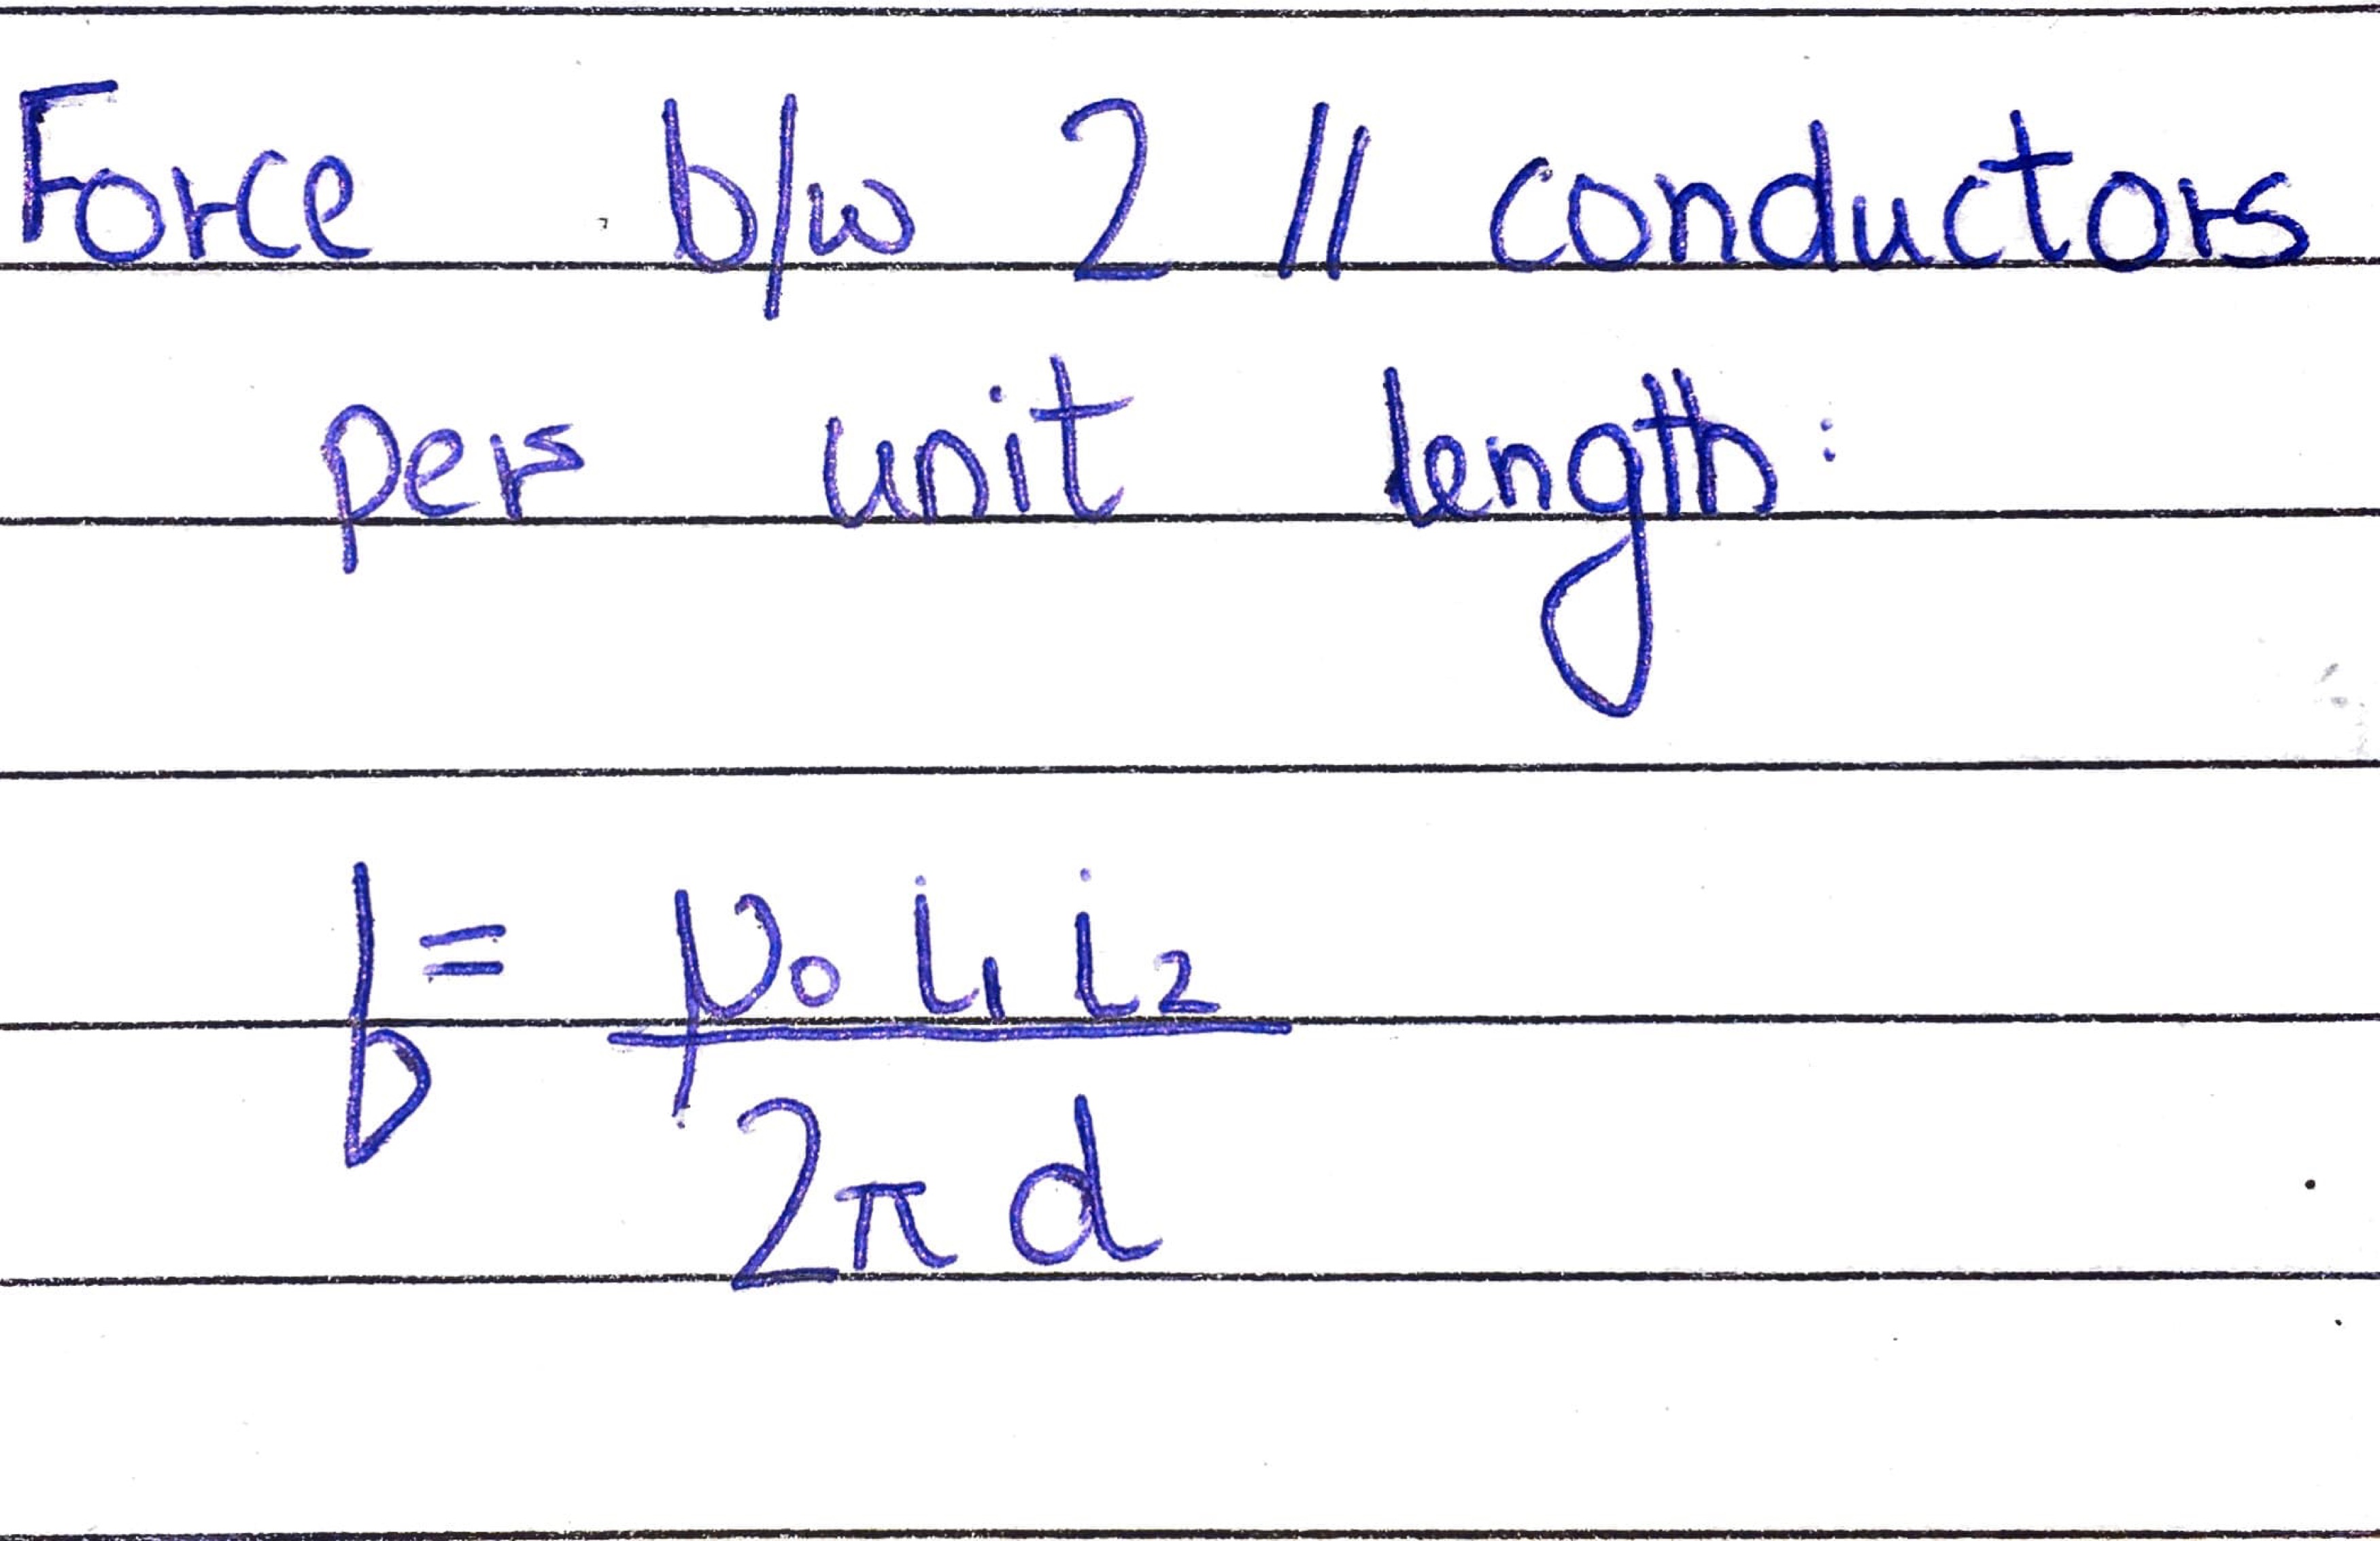 Force b/w 2 || conductors
per unit length:
f = μ₀ i₁ i₂ / 2π d